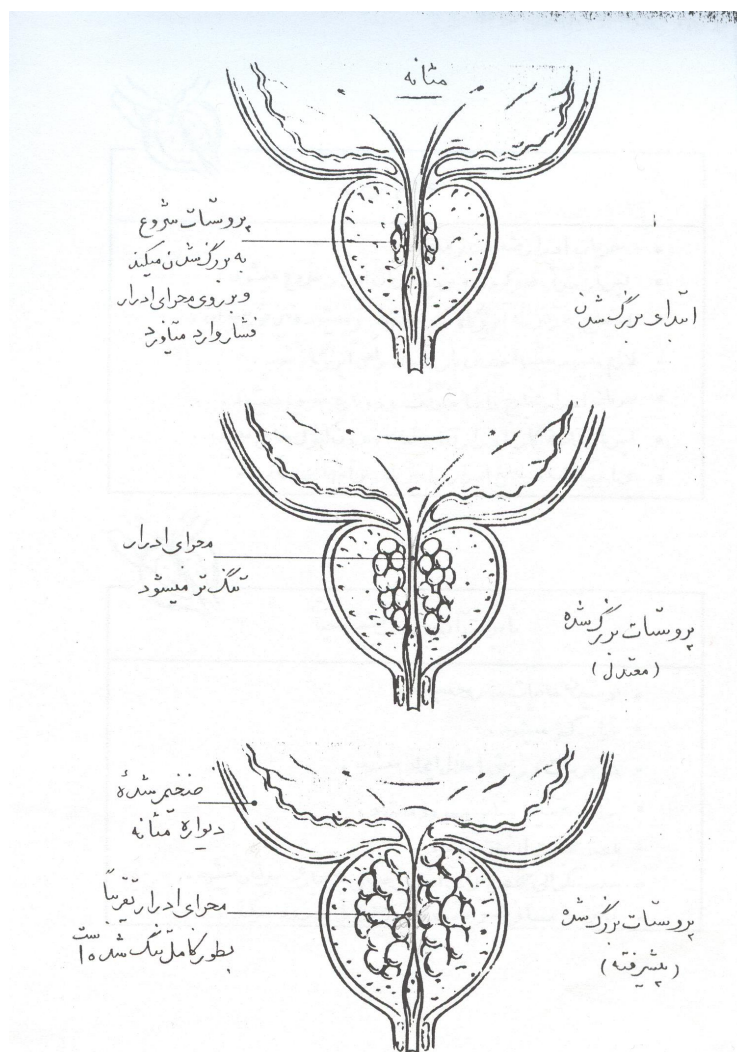 مثانه
پروستات شروع
به بزرگ شدن میکند
و بر روی مجرای ادرار
فشار وارد میآورد
ابتدای بزرگ شدن
مجرای ادرار
تنگ تر میشود
پروستات بزرگ شده
(معتدل)
ضخیم شدهٔ
دیواره مثانه
مجرای ادرار تقریباً
بطور کامل تنگ شده است
پروستات بزرگ شده
(پیشرفته)